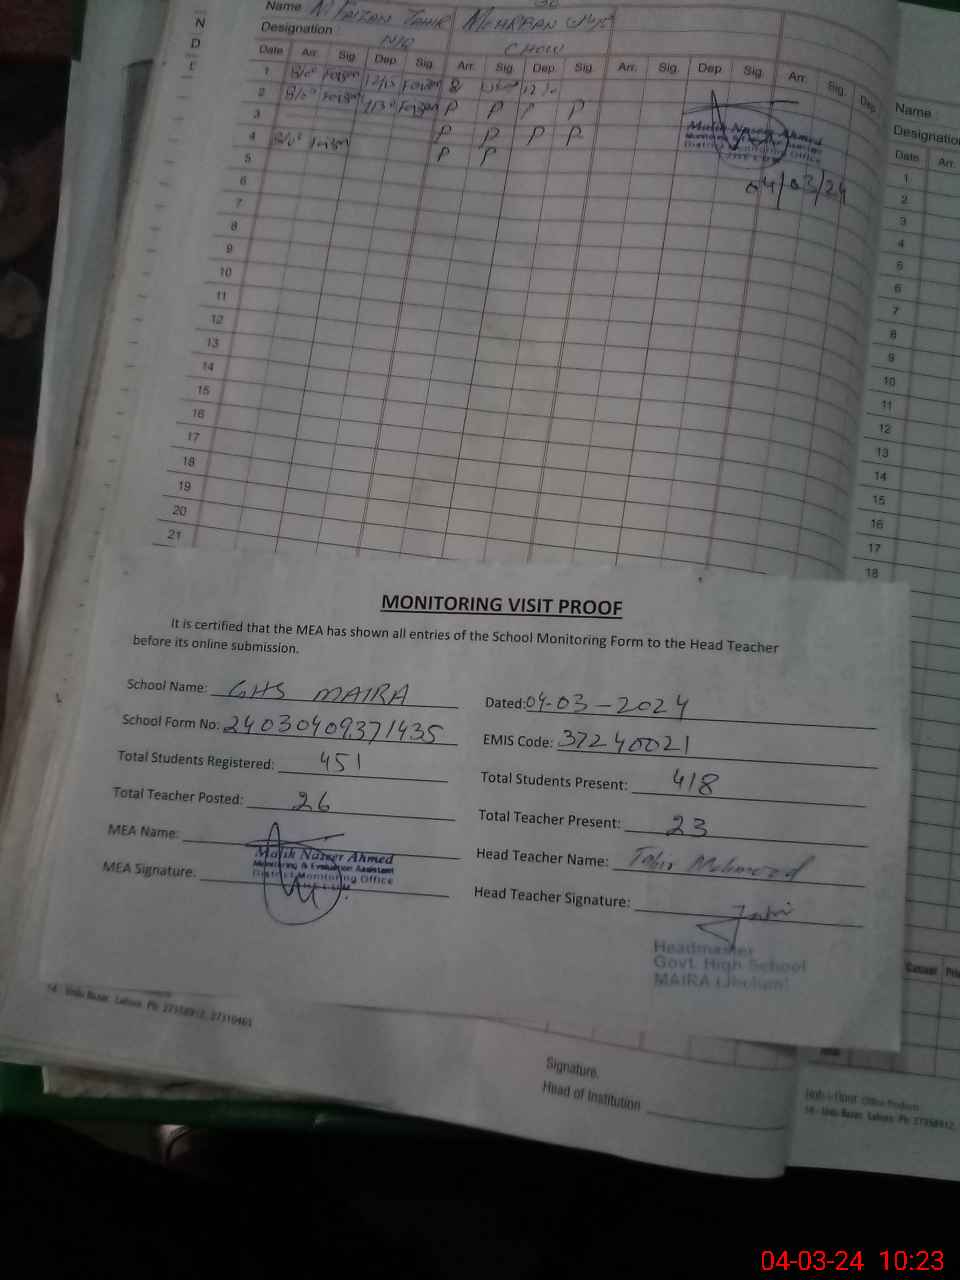 N
D
Name M Faizan Tahir
Designation N/Q CHOW
Date Arr. Sig. Dep. Sig. Arr. Sig. Dep. Sig. Arr. Sig. Dep. Sig. Arr. Sig. Dep.
1
2 P P P P
3 P P P P
4 P P
5
6
7
8
9
10
11
12
13
14
15
16
17
18
19
20
21
Malik Naseer Ahmed
Monitoring & Evaluation Assistant
District Monitoring Office
04/03/24
Name
Designation
Date Arr.
1
2
3
4
5
6
7
8
9
10
11
12
13
14
15
16
17
18
MONITORING VISIT PROOF
It is certified that the MEA has shown all entries of the School Monitoring Form to the Head Teacher
before its online submission.
School Name: GHS MAIRA Dated: 04-03-2024
School Form No: 24030409371435 EMIS Code: 37240021
Total Students Registered: 451 Total Students Present: 418
Total Teacher Posted: 26 Total Teacher Present: 23
MEA Name: Head Teacher Name: Tahir Mehmood
MEA Signature. Head Teacher Signature: Tahir
Malik Naseer Ahmed
Monitoring & Evaluation Assistant
District Monitoring Office
JHELUM
Headmaster
Govt. High School
MAIRA (Jhelum)
14 - Urdu Bazar, Lahore. Ph: 37358912, 37310461
Signature.
Head of Institution
Casual
14 - Urdu Bazar, Lahore. Ph: 37358912,
04-03-24 10:23